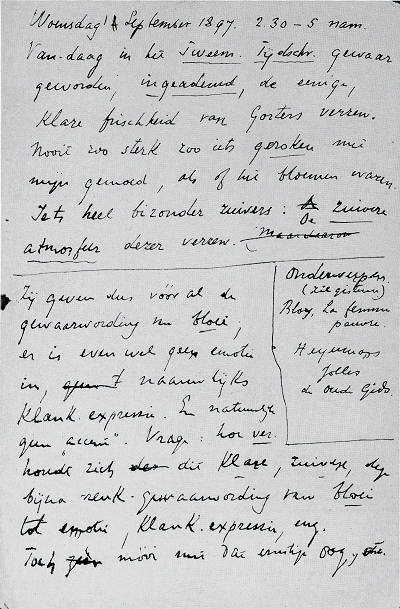 Woensdag 1 September 1897. 2.30 – 5 nam.
Van-daag in het Tweem. Tijdschr. gewaar
geworden, ingeademd, de eenige,
klare frischheid van Gorters verzen.
Nooit zoo sterk zoo iets geroken met
mijn gemoed, als of het bloemen waren.
Iets heel bizonder zuivers: De zuivere
atmosfeer dezer verzen.
Zij geven dus vóór al de
gewaarwording van bloei;
er is even wel geen emotie
in, naauwlijks
klank-expressie. En natuurlijk
geen "accent". Vraag: hoe ver-
houdt zich die klare, zuivere, deze
bijna reuk-gewaarwording van bloei
tot emotie, klank-expressie, enz.
Toch mooi met dat ernstige oog,
Onderwerpen.
(zie gisteren)
Bloy, La femme
pauvre.
Heyermans
Jolles
de oude Gids.